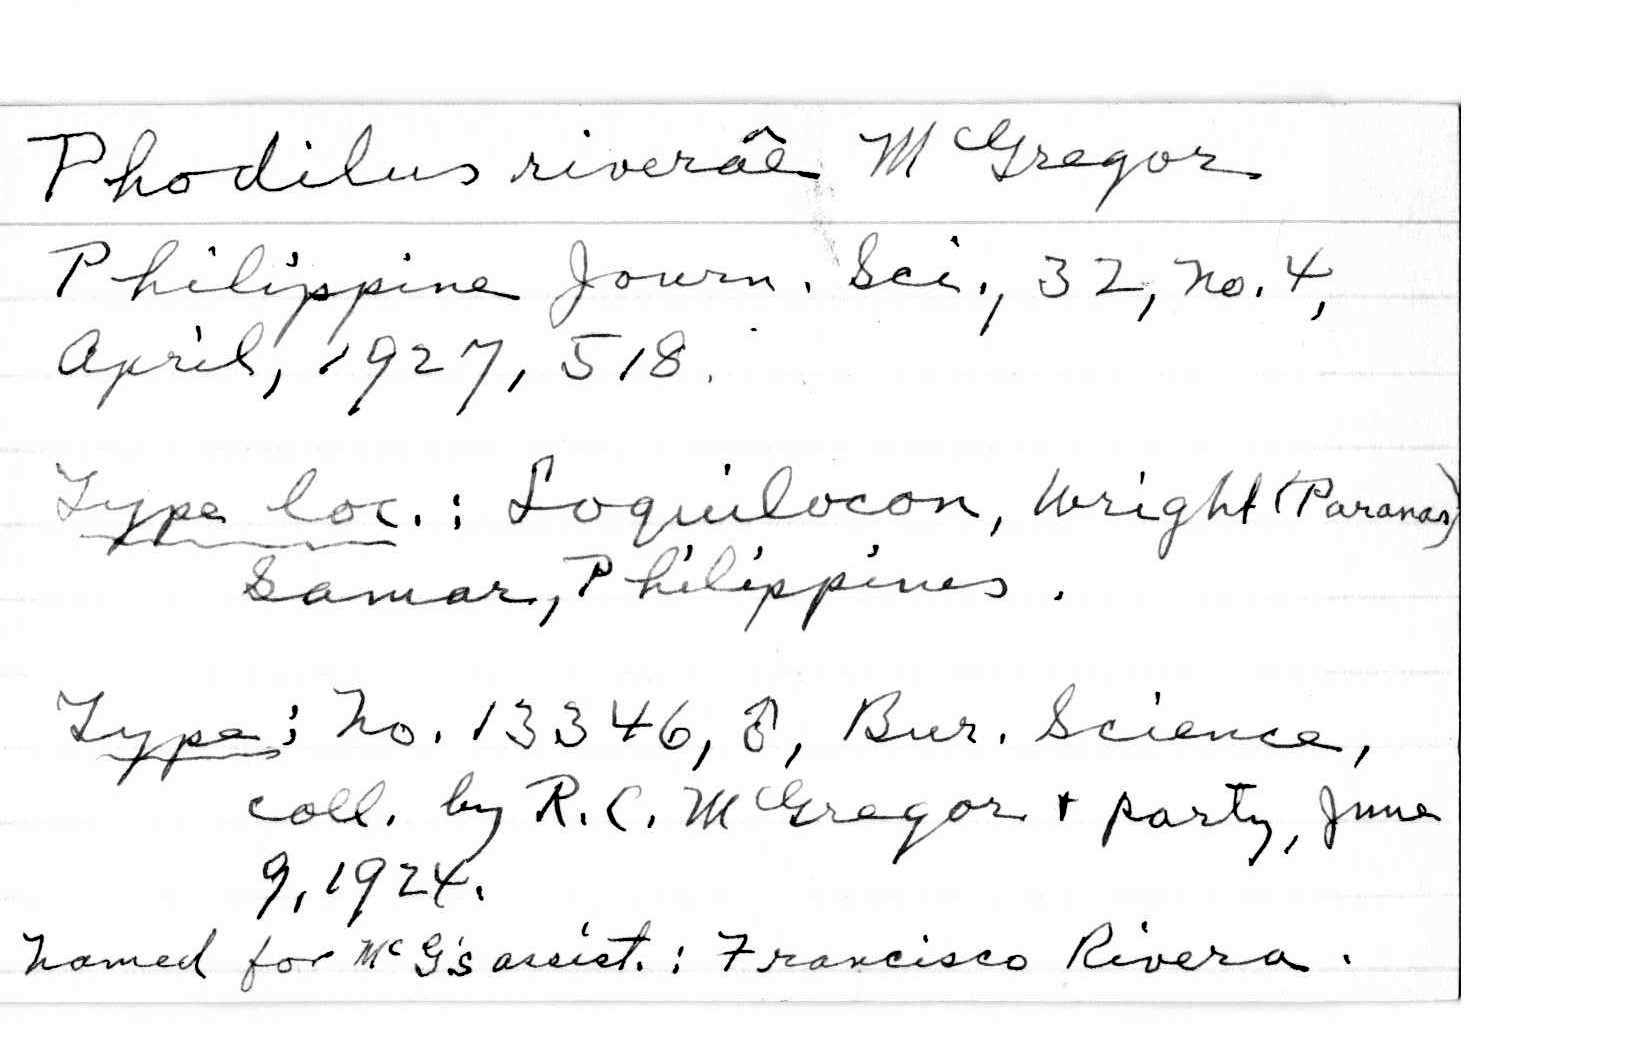 Phodilus riverae McGregor
Philippine Journ. Sci., 32, No. 4,
April, 1927, 518.
Type loc.: Loquilocon, Wright (Paranas)
Samar, Philippines.
Type: No. 13346, ♂, Bur. Science,
coll. by R.C. McGregor + party, June
9, 1924.
Named for McG's assist.: Francisco Rivera.